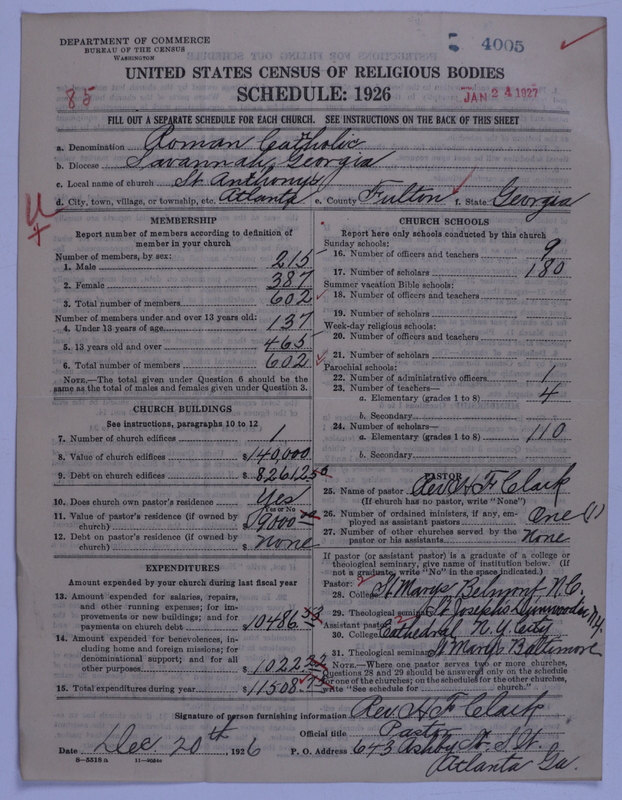 DEPARTMENT OF COMMERCE
BUREAU OF THE CENSUS
WASHINGTON
4005
UNITED STATES CENSUS OF RELIGIOUS BODIES
SCHEDULE: 1926
85
JAN 24 1927
FILL OUT A SEPARATE SCHEDULE FOR EACH CHURCH. SEE INSTRUCTIONS ON THE BACK OF THIS SHEET
a. Denomination Roman Catholic
b. Diocese Savannah, Georgia
c. Local name of church St Anthonys
d. City, town, village, or township, etc. Atlanta e. County Fulton f. State Georgia
MEMBERSHIP
Report number of members according to definition of
member in your church
Number of members, by sex:
1. Male 215
2. Female 387
3. Total number of members 602
Number of members under and over 13 years old:
4. Under 13 years of age 137
5. 13 years old and over 465
6. Total number of members 602
NOTE.—The total given under Question 6 should be the
same as the total of males and females given under Question 3.
CHURCH BUILDINGS
See instructions, paragraphs 10 to 12
7. Number of church edifices 1
8. Value of church edifices $140,000
9. Debt on church edifices $82612 50
10. Does church own pastor's residence Yes
Yes or No
11. Value of pastor's residence (if owned by
church) $9000 00
12. Debt on pastor's residence (if owned by
church) $ None
EXPENDITURES
Amount expended by your church during last fiscal year
13. Amount expended for salaries, repairs,
and other running expenses; for im-
provements or new buildings; and for
payments on church debt $10486 53
14. Amount expended for benevolences, in-
cluding home and foreign missions; for
denominational support; and for all
other purposes $1022 22
15. Total expenditures during year $11508 75
CHURCH SCHOOLS
Report here only schools conducted by this church
Sunday schools:
16. Number of officers and teachers 9
17. Number of scholars 180
Summer vacation Bible schools:
18. Number of officers and teachers
19. Number of scholars
Week-day religious schools:
20. Number of officers and teachers
21. Number of scholars
Parochial schools:
22. Number of administrative officers 1
23. Number of teachers—
a. Elementary (grades 1 to 8) 4
b. Secondary
24. Number of scholars—
a. Elementary (grades 1 to 8) 110
b. Secondary
PASTOR
25. Name of pastor Rev H F Clark
(If church has no pastor, write "None")
26. Number of ordained ministers, if any, em-
ployed as assistant pastors One (1)
27. Number of other churches served by the
pastor or his assistants None
If pastor (or assistant pastor) is a graduate of a college or
theological seminary, give name of institution below. (If
not a graduate, write "No" in the space indicated.)
Pastor:
28. College St Marys, Belmont N.C.
29. Theological seminary St Josephs Dunwoodie N.Y.
Assistant pastor:
30. College Cathedral N.Y. City
31. Theological seminary St Marys Baltimore
NOTE.—Where one pastor serves two or more churches,
Questions 28 and 29 should be answered only on the schedule
for one of the churches; on the schedule for the other churches,
write "See schedule for church."
Signature of person furnishing information Rev H F Clark
Official title Pastor
Date Dec 20th, 1926 P. O. Address 643 Ashby St. S.W.
Atlanta Ga.
8—5518a 11—9024c